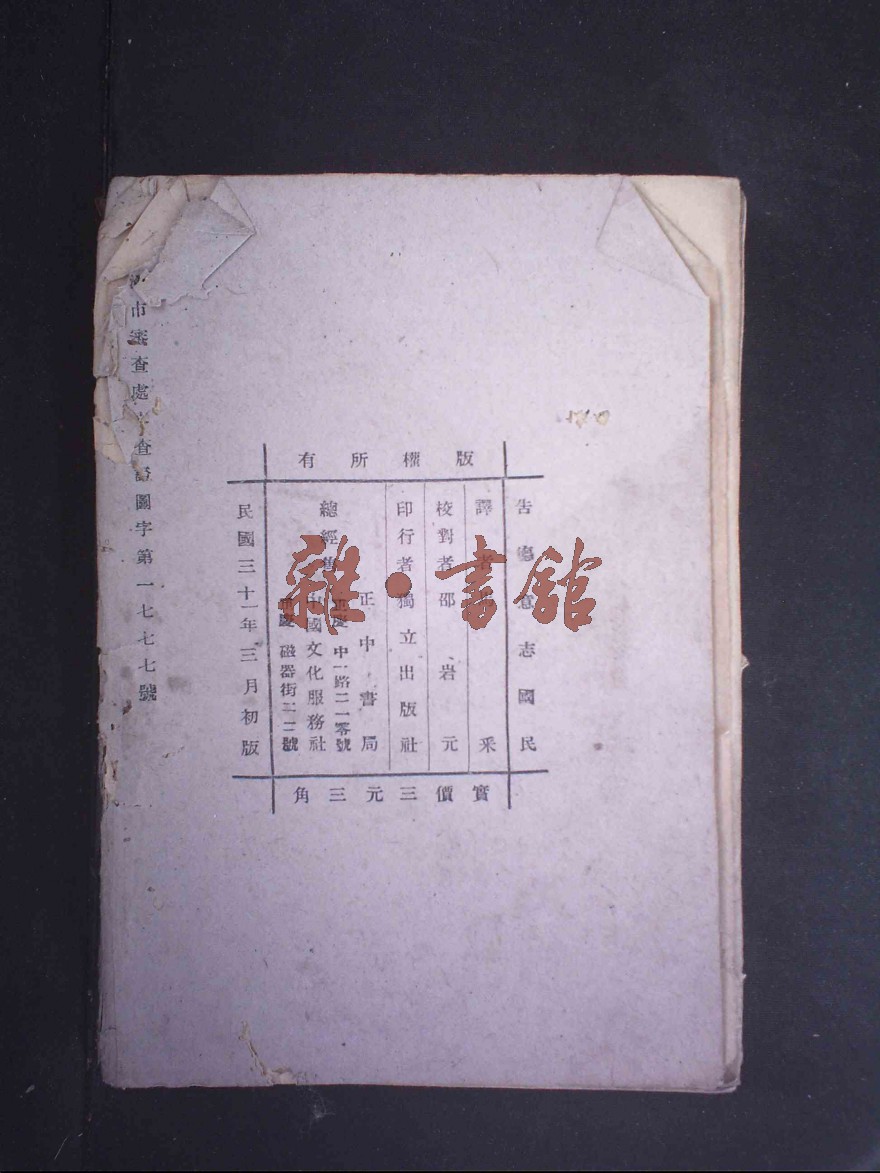 版權所有
告德意志國民
譯者 采
校對者邵岩元
印行者獨立出版社
正中書局
中一路二一零號
總經售
中國文化服務社
磁器街二二號
民國三十一年三月初版
實價三元三角
市審查處
查證圖字第一七七七號
雜·書館